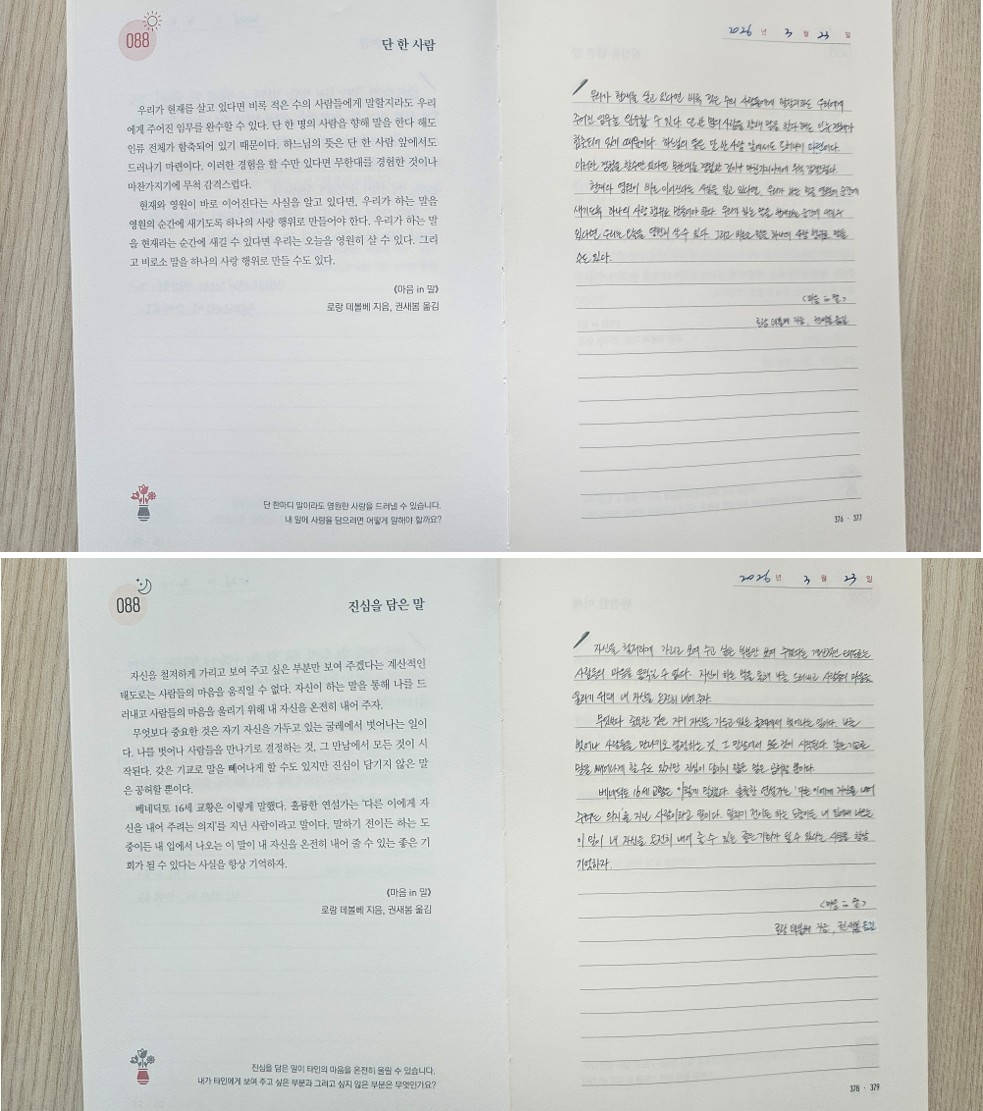 088
단 한 사람
우리가 현재를 살고 있다면 비록 적은 수의 사람들에게 말할지라도 우리
에게 주어진 임무를 완수할 수 있다. 단 한 명의 사람을 향해 말을 한다 해도
인류 전체가 함축되어 있기 때문이다. 하느님의 뜻은 단 한 사람 앞에서도
드러나기 마련이다. 이러한 경험을 할 수만 있다면 무한대를 경험한 것이나
마찬가지기에 무척 감격스럽다.
현재와 영원이 바로 이어진다는 사실을 알고 있다면, 우리가 하는 말을
영원의 순간에 새기도록 하나의 사랑 행위로 만들어야 한다. 우리가 하는 말
을 현재라는 순간에 새길 수 있다면 우리는 오늘을 영원히 살 수 있다. 그리
고 비로소 말을 하나의 사랑 행위로 만들 수도 있다.
《마음 in 말》
로랑 데볼베 지음, 권새봄 옮김
단 한마디 말이라도 영원한 사랑을 드러낼 수 있습니다.
내 말에 사랑을 담으려면 어떻게 말해야 할까요?
2026 년 3 월 23 일
우리가 현재를 살고 있다면 비록 적은 수의 사람들에게 말할지라도 우리에게
주어진 임무를 완수할 수 있다. 단 한 명의 사람을 향해 말을 한다 해도 인류 전체가
함축되어 있기 때문이다. 하느님의 뜻은 단 한 사람 앞에서도 드러나기 마련이다.
이러한 경험을 할 수만 있다면 무한대를 경험한 것이나 마찬가지기에 무척 감격스럽다.
현재와 영원이 바로 이어진다는 사실을 알고 있다면, 우리가 하는 말을 영원의 순간에
새기도록 하나의 사랑 행위로 만들어야 한다. 우리가 하는 말을 현재라는 순간에 새길 수
있다면 우리는 오늘을 영원히 살 수 있다. 그리고 비로소 말을 하나의 사랑 행위로 만들
수도 있다.
<마음 in 말>
로랑 데볼베 지음, 권새봄 옮김
376 · 377
088
진심을 담은 말
자신을 철저하게 가리고 보여 주고 싶은 부분만 보여 주겠다는 계산적인
태도로는 사람들의 마음을 움직일 수 없다. 자신이 하는 말을 통해 나를 드
러내고 사람들의 마음을 울리기 위해 내 자신을 온전히 내어 주자.
무엇보다 중요한 것은 자기 자신을 가두고 있는 굴레에서 벗어나는 일이
다. 나를 벗어나 사람들을 만나기로 결정하는 것, 그 만남에서 모든 것이 시
작된다. 갖은 기교로 말을 빼어나게 할 수도 있지만 진심이 담기지 않은 말
은 공허할 뿐이다.
베네딕토 16세 교황은 이렇게 말했다. 훌륭한 연설가는 '다른 이에게 자
신을 내어 주려는 의지'를 지닌 사람이라고 말이다. 말하기 전이든 하는 도
중이든 내 입에서 나오는 이 말이 내 자신을 온전히 내어 줄 수 있는 좋은 기
회가 될 수 있다는 사실을 항상 기억하자.
《마음 in 말》
로랑 데볼베 지음, 권새봄 옮김
진심을 담은 말이 타인의 마음을 온전히 울릴 수 있습니다.
내가 타인에게 보여 주고 싶은 부분과 그러고 싶지 않은 부분은 무엇인가요?
2026 년 3 월 23 일
자신을 철저하게 가리고 보여 주고 싶은 부분만 보여 주겠다는 계산적인 태도로는
사람들의 마음을 움직일 수 없다. 자신이 하는 말을 통해 나를 드러내고 사람들의 마음을
울리기 위해 내 자신을 온전히 내어 주자.
무엇보다 중요한 것은 자기 자신을 가두고 있는 굴레에서 벗어나는 일이다. 나를
벗어나 사람들을 만나기로 결정하는 것, 그 만남에서 모든 것이 시작된다. 갖은 기교로
말을 빼어나게 할 수도 있지만 진심이 담기지 않은 말은 공허할 뿐이다.
베네딕토 16세 교황은 이렇게 말했다. 훌륭한 연설가는 '다른 이에게 자신을 내어
주려는 의지'를 지닌 사람이라고 말이다. 말하기 전이든 하는 도중이든 내 입에서 나오는
이 말이 내 자신을 온전히 내어 줄 수 있는 좋은 기회가 될 수 있다는 사실을 항상
기억하자.
<마음 in 말>
로랑 데볼베 지음, 권새봄 옮김
378 · 379